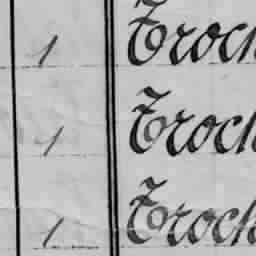 1 Troch
1 Troch
1 Troch